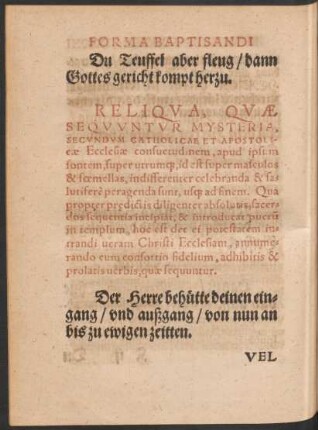 FORMA BAPTISANDI
Du Teuffel aber fleug / dann
Gottes gericht kompt herzu.
RELIQVA, QVÆ
SEQVVNTVR MYSTERIA,
SECVNDVM CATHOLICAE ET APOSTOLI-
cæ Ecclesiæ consuetudinem, apud ipsum
fontem, super utrumq;, id est super masculos
& fœmellas, indifferenter celebranda & sa-
lutiferè peragenda sunt, usq; ad finem. Qua
propter prędictis diligenter absolutis, sacer-
dos sequentia incipiat, & introducat puerū
in templum, hoc est det ei potestatem in-
trandi ueram Christi Ecclesiam, annume-
rando eum consortio fidelium, adhibitis &
prolatis uerbis, quæ sequuntur.
Der Herre behütte deinen ein-
gang / vnd außgang / von nun an
bis zu ewigen zeitten.
VEL